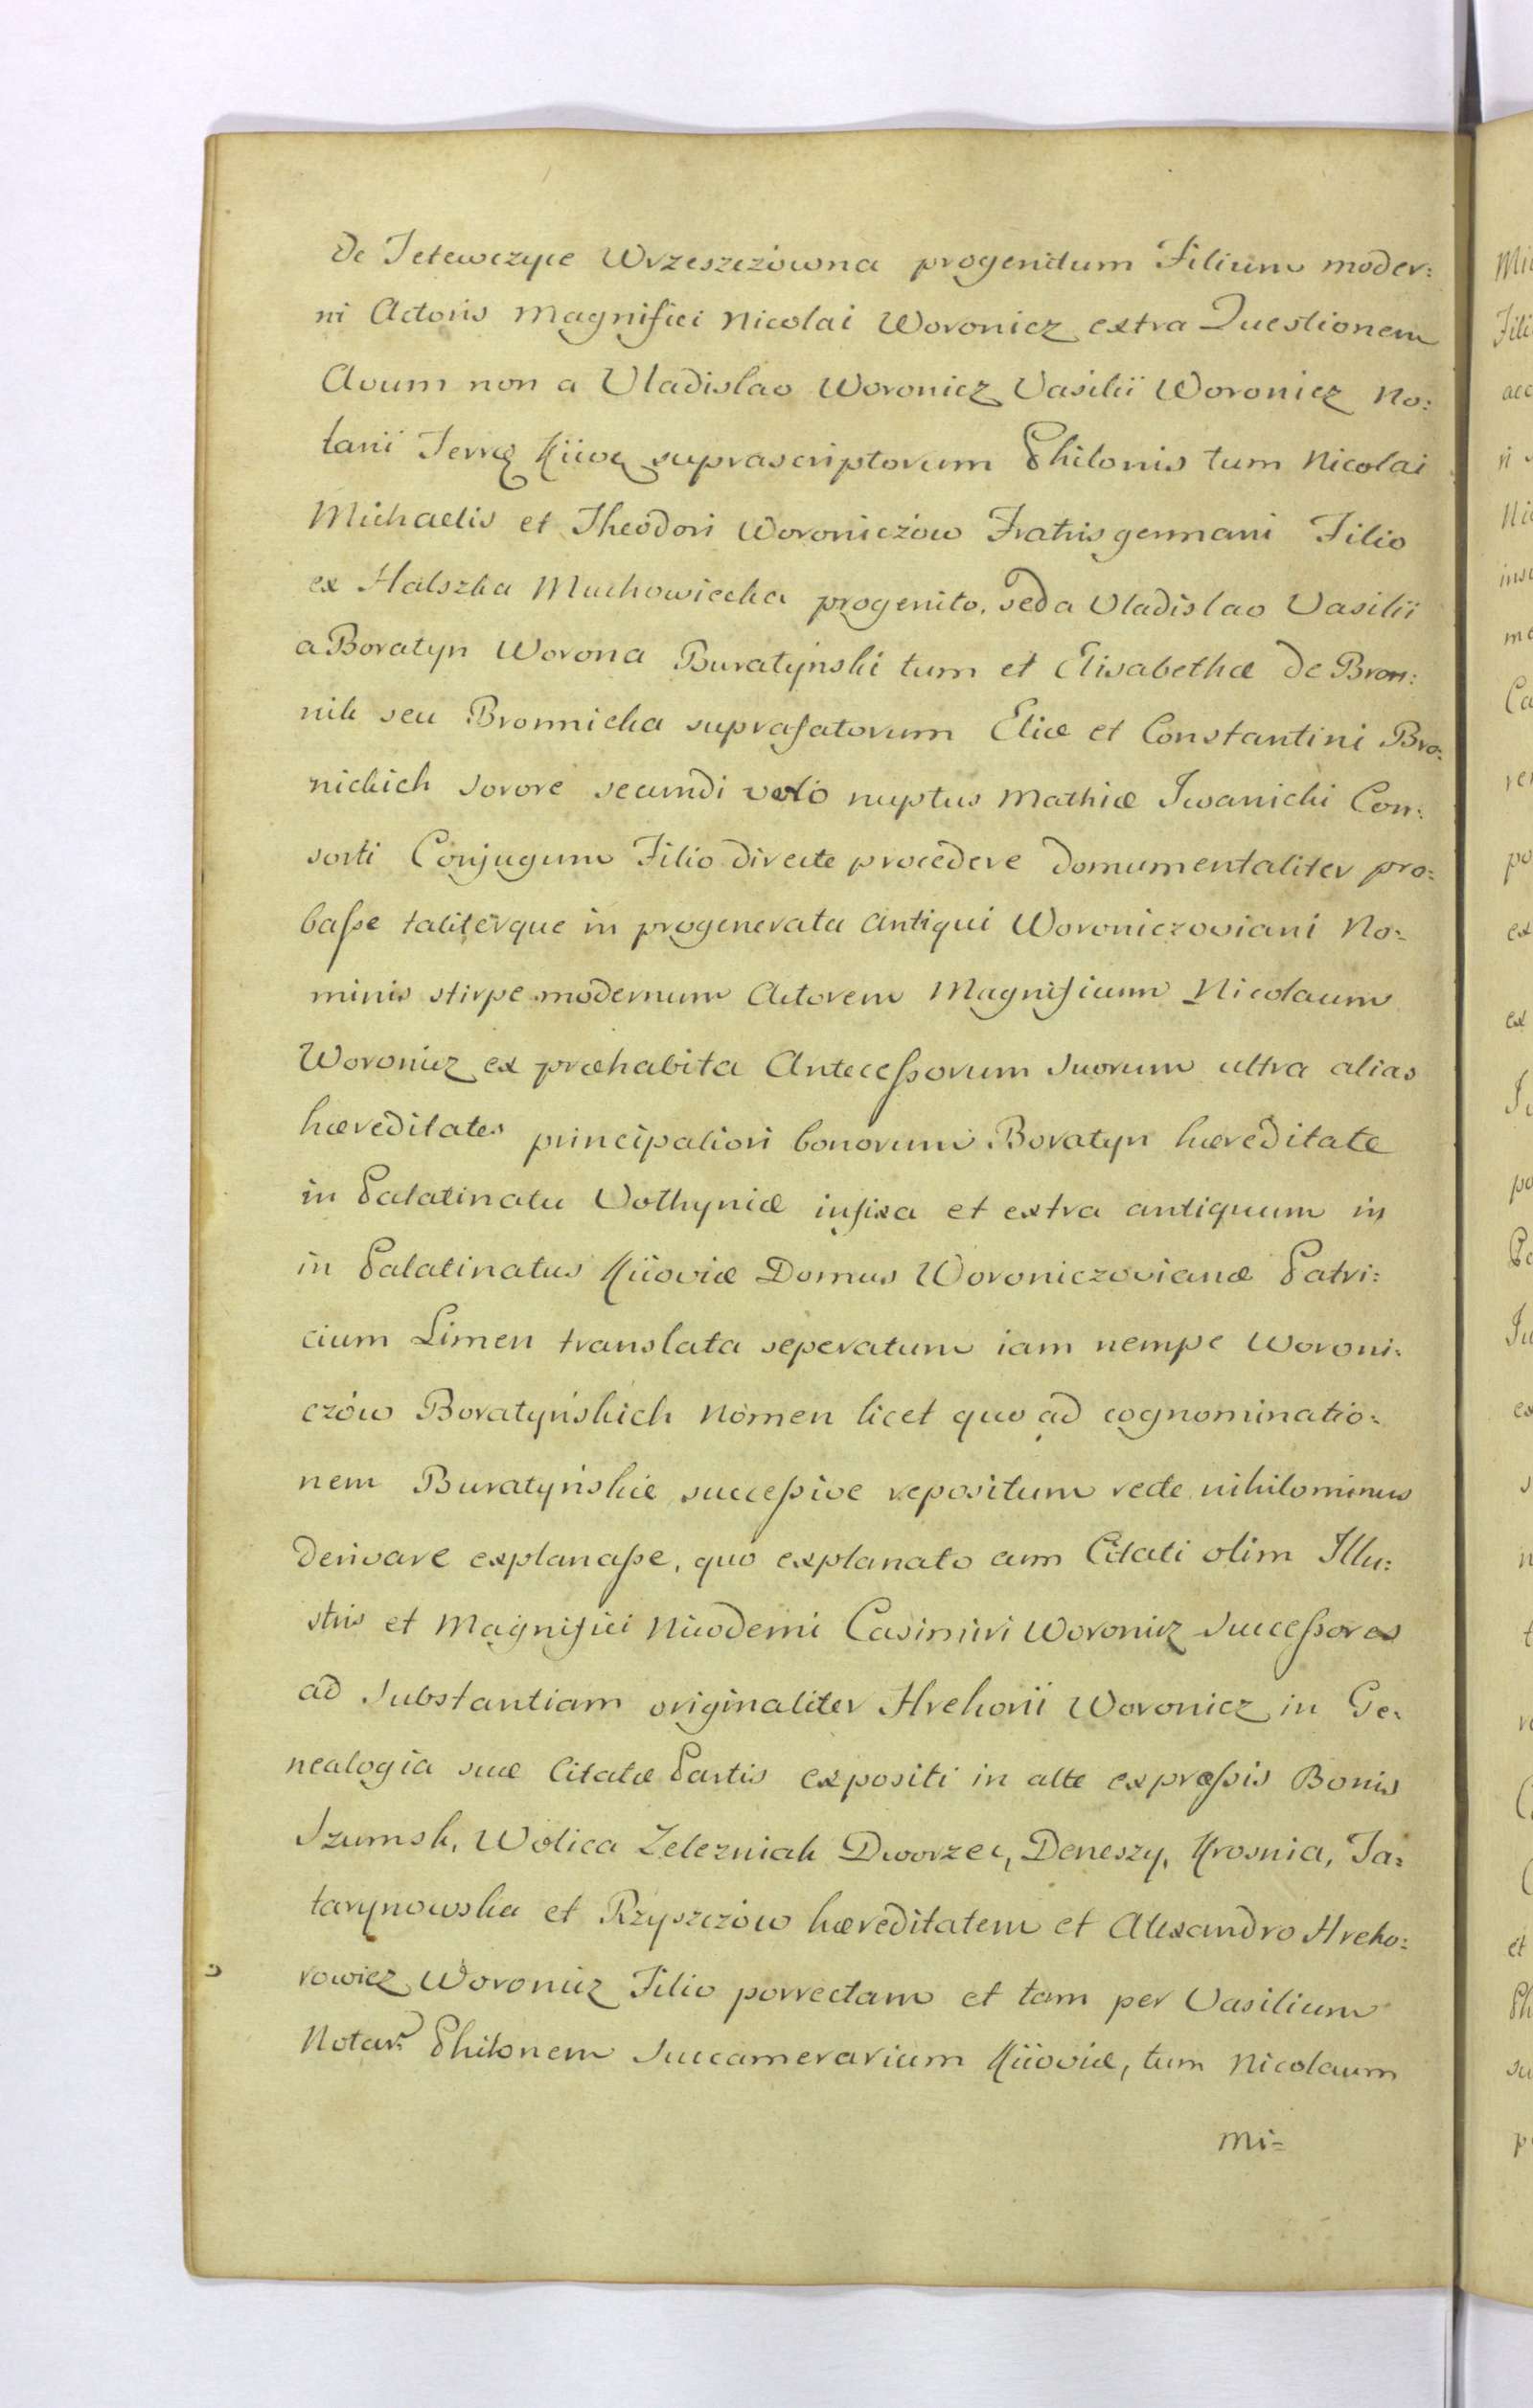 de Tetewczyce Wrzeszczowna progenitum Filium moder:
ni Actoris Magnifici Nicolai Woronicz extra Questionem
Avum non a Vladislao Woronicz Vasilii Woronicz No:
tarii Terrę Kiivę suprascriptorum Philonis tum Nicolai
Michaelis et Theodori Woroniczów Fratris germani Filio
ex Halszka Muchowiecka progenito, sed a Vladislao Vasilii
a Boratyn Worona Buratyński tum et Elisabethæ de Bron:
nik seu Bronnicka suprafatorum Eliæ et Constantini Bro:
nickich sorore secundi voto nuptus Mathiæ Iwanicki Con:
sorti Conjugum Filio directe procedere domumentaliter pro:
basse taliterque in progenerata antiqui Woroniczoviani No:
minis stirpe modernum Actorem Magnificum Nicolaum
Woronicz ex præhabita Antecessorum suorum ultra alias
hæreditates principaliori bonorum Boratyn hæreditate
in Palatinatu Volhyniæ infixa et extra antiquum in
in Palatinatus Kiioviæ Domus Woroniczovianæ Patri:
cium Limen translata seperatum iam nempe Woroni:
czów Boratyńskich nomen licet quo ad cognominatio:
nem Buratyńskie successive repositum recte nihilominus
derivare explanasse, quo explanato cum Citati olim Illu:
stris et Magnifici Nicodemi Casimiri Woronicz Successores
ad Substantiam originaliter Hrehorii Woronicz in Ge:
nealogia suæ Citatæ Partis expositi in alte expressis Bonis
Szumsk, Wolica Zelezniak Dworzec, Deneszy, Krosnia, Ta:
tarynowska et Rzyszczów hæreditatem et Alexandro Hreho:
rowicz Woronicz Filio porrectam et tam per Vasilium
Notar. Philonem Succamerarium Kiioviæ, tum Nicolaum
Mi=